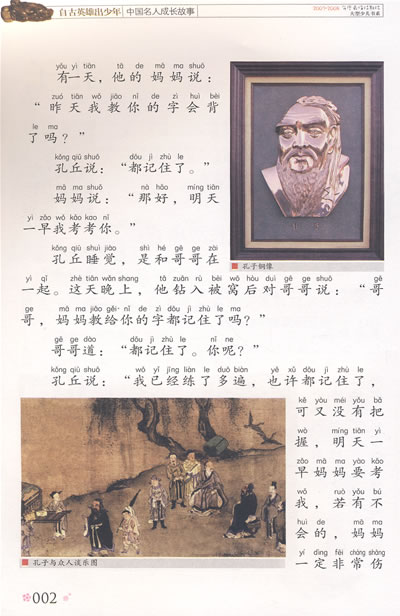 自古英雄出少年 中国名人成长故事
yǒu yì tiān tā de mā ma shuō
有一天，他的妈妈说：
zuó tiān wǒ jiāo nǐ de zì huì bèi
“昨天我教你的字会背
le ma
了吗？”
kǒng qiū shuō dōu jì zhù le
孔丘说：“都记住了。”
mā ma shuō nà hǎo míng tiān
妈妈说：“那好，明天
yì zǎo wǒ kǎo kao nǐ
一早我考考你。”
kǒng qiū shuì jiào shì hé gē ge zài
孔丘睡觉，是和哥哥在
yì qǐ zhè tiān wǎn shang tā zuān rù bèi wō hòu duì gē ge shuō gē
一起。这天晚上，他钻入被窝后对哥哥说：“哥
ge mā ma jiāo gěi nǐ de zì dōu jì zhù le ma
哥，妈妈教给你的字都记住了吗？”
gē ge dào dōu jì zhù le nǐ ne
哥哥道：“都记住了。你呢？”
kǒng qiū shuō wǒ yǐ jīng liàn le duō biàn yě xǔ dōu jì zhù le
孔丘说：“我已经练了多遍，也许都记住了，
kě yòu méi yǒu bǎ
可又没有把
wò míng tiān yì
握，明天一
zǎo mā ma yào kǎo
早妈妈要考
wǒ ruò yǒu bú
我，若有不
huì de mā ma
会的，妈妈
yí dìng fēi cháng shāng
一定非常伤
孔子铜像
孔子与众人谈乐图
002